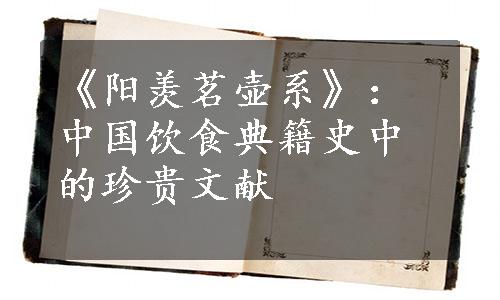 《阳羡茗壶系》：
中国饮食典籍史中
的珍贵文献